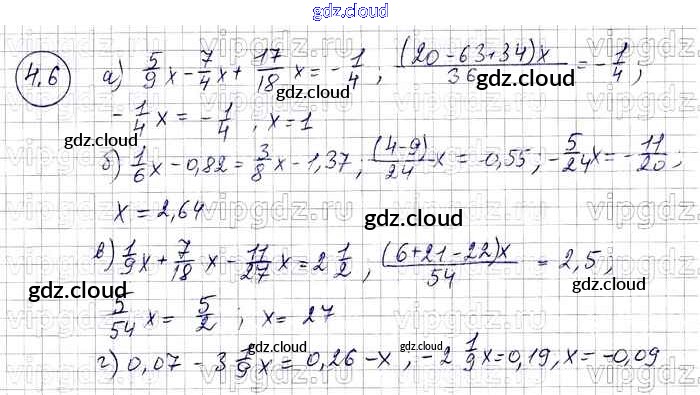 gdz.cloud
4.6 а) 5/9 x - 7/4 x + 17/18 x = - 1/4 ; (20-63+34)x/36 = - 1/4 ;
- 1/4 x = - 1/4 , x = 1
gdz.cloud gdz.cloud
б) 1/6 x - 0,82 = 3/8 x - 1,37 ; (4-9)/24 x = -0,55 ; - 5/24 x = - 11/20 ;
gdz.cloud
x = 2,64
gdz.cloud
в) 1/9 x + 7/18 x - 11/27 x = 2 1/2 , (6+21-22)x/54 = 2,5 ;
gdz.cloud gdz.cloud
5/54 x = 5/2 ; x = 27
gdz.cloud gdz.cloud
г) 0,07 - 3 1/9 x = 0,26 - x ; - 2 1/9 x = 0,19 , x = -0,09
gdz.cloud
vipgdz.ru